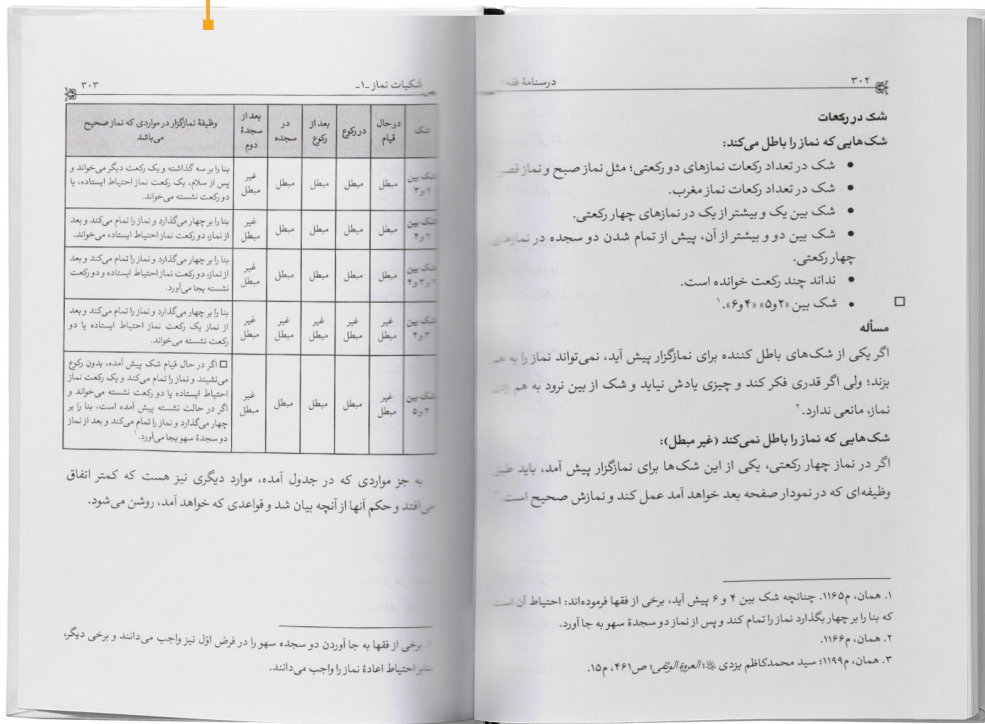 ۳۰۲
درسنامهٔ
شک در رکعات
شک‌هایی که نماز را باطل می‌کند:
● شک در تعداد رکعات نمازهای دو رکعتی؛ مثل نماز صبح و نماز
● شک در تعداد رکعات نماز مغرب.
● شک بین یک و بیشتر از یک در نمازهای چهار رکعتی.
● شک بین دو و بیشتر از آن، پیش از تمام شدن دو سجده در
چهار رکعتی.
● نداند چند رکعت خوانده است.
□ ● شک بین «۲ و ۵» «۴ و ۶».۱
مسأله
اگر یکی از شک‌های باطل کننده برای نمازگزار پیش آید، نمی‌تواند نماز را به
بزند؛ ولی اگر قدری فکر کند و چیزی یادش نیاید و شک از بین نرود به هم
نماز، مانعی ندارد.۲
شک‌هایی که نماز را باطل نمی‌کند (غیر مبطل):
اگر در نماز چهار رکعتی، یکی از این شک‌ها برای نمازگزار پیش آمد، باید
وظیفه‌ای که در نمودار صفحه بعد خواهد آمد عمل کند و نمازش صحیح است.
۱. همان، م۱۱۶۵. چنانچه شک بین ۴ و ۶ پیش آید، برخی از فقها فرموده‌اند: احتیاط آن است
که بنا را بر چهار بگذارد نماز را تمام کند و پس از نماز دو سجدهٔ سهو به جا آورد.
۲. همان، م۱۱۶۶.
۳. همان، م۱۱۹۹؛ سید محمدکاظم یزدی؛ العروة الوثقی؛ ص۴۶۱، م۱۵.
شکیات نماز ـ۱ـ
۳۰۳
شک
در حال
قیام
در رکوع
بعد از
رکوع
در
سجده
بعد از
سجدهٔ
دوم
وظیفهٔ نمازگزار در مواردی که نماز صحیح
می‌باشد
شک بین
۲ و ۳
مبطل
مبطل
مبطل
مبطل
غیر
مبطل
بنا را بر سه گذاشته و یک رکعت دیگر می‌خواند و
پس از سلام، یک رکعت نماز احتیاط ایستاده، یا
دو رکعت نشسته می‌خواند.
شک بین
۲ و ۴
مبطل
مبطل
مبطل
مبطل
غیر
مبطل
بنا را بر چهار می‌گذارد و نماز را تمام می‌کند و بعد
از نماز، دو رکعت نماز احتیاط ایستاده می‌خواند.
شک بین
۲ و ۳ و ۴
مبطل
مبطل
مبطل
مبطل
غیر
مبطل
بنا را بر چهار می‌گذارد و نماز را تمام می‌کند و بعد
از نماز، دو رکعت نماز احتیاط ایستاده و دو رکعت
نشسته بجا می‌آورد.
شک بین
۳ و ۴
غیر
مبطل
غیر
مبطل
غیر
مبطل
غیر
مبطل
غیر
مبطل
بنا را بر چهار می‌گذارد و نماز را تمام می‌کند و بعد
از نماز یک رکعت نماز احتیاط ایستاده یا دو
رکعت نشسته می‌خواند.
شک بین
۴ و ۵
غیر
مبطل
مبطل
مبطل
مبطل
غیر
مبطل
□ اگر در حال قیام شک پیش آمده، بدون رکوع
می‌نشیند و نماز را تمام می‌کند و یک رکعت نماز
احتیاط ایستاده یا دو رکعت نشسته می‌خواند و
اگر در حالت نشسته پیش آمده است، بنا را بر
چهار می‌گذارد و نماز را تمام می‌کند و بعد از نماز
دو سجدهٔ سهو بجا می‌آورد.۱
به جز مواردی که در جدول آمده، موارد دیگری نیز هست که کمتر اتفاق
می‌افتد و حکم آنها از آنچه بیان شد و قواعدی که خواهد آمد، روشن می‌شود.
برخی از فقها به جا آوردن دو سجده سهو را در فرض اوّل نیز واجب می‌دانند و برخی دیگر،
بنابر احتیاط اعادهٔ نماز را واجب می‌دانند.